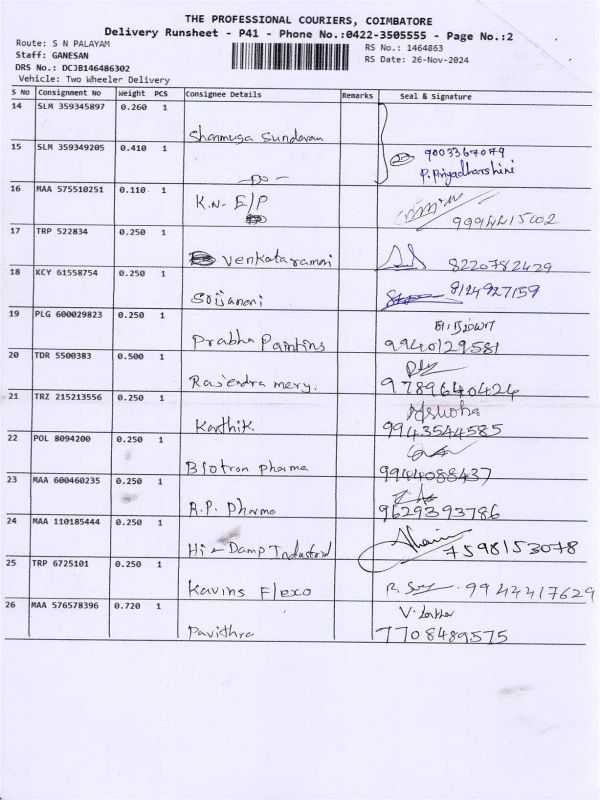 THE PROFESSIONAL COURIERS, COIMBATORE
Delivery Runsheet - P41 - Phone No.:0422-3505555 - Page No.:2
Route: S N PALAYAM
RS No.: 1464863
Staff: GANESAN
RS Date: 26-Nov-2024
DRS No.: DCJB146486302
Vehicle: Two Wheeler Delivery
S No Consignment No Weight PCS Consignee Details Remarks Seal & Signature
14 SLM 359345897 0.260 1
Shanmuga Sundaram
15 SLM 359349205 0.410 1 9003367079
P. Priyadharshini
- Do -
16 MAA 575510251 0.110 1
K.N. E/P
17 TRP 522834 0.250 1
Venkataramani 8220782429
18 KCY 61558754 0.250 1 8124927159
Srijanani
19 PLG 600029823 0.250 1
Prabha Paintins 9940129581
20 TDR 5500383 0.500 1
Rajendra mery. 9789640424
21 TRZ 215213556 0.250 1 Ashoha
Karthik. 9943544585
22 POL 8094200 0.250 1
Biotron pharma 9944088437
23 MAA 600460235 0.250 1
R.P. Pharma 9629393786
24 MAA 110185444 0.250 1
Hi - Damp Industrial 7598153078
25 TRP 6725101 0.250 1
Kavins Flexo 9944417629
26 MAA 576578396 0.720 1
Pavithra 7708489575